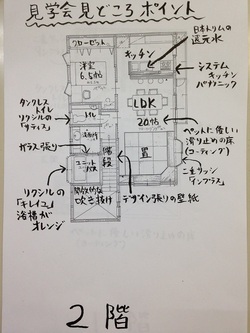 見学会見どころポイント
日本トリムの
還元水
クローゼット
キッチン
洋室
6.5帖
システム
キッチン
パナソニック
タンクレス
トイレ
リクシルの
「サティス」
トイレ
LDK
20帖
ガラス張り
洗面
ペットに優しい
滑り止めの床
(コーティング)
ユニット
バス
階段
畳
二重サッシ
「インプラス」
リクシルの
「キレイユ」
浴槽が
オレンジ
開放的な
吹き抜け
デザイン張りの壁紙
2階